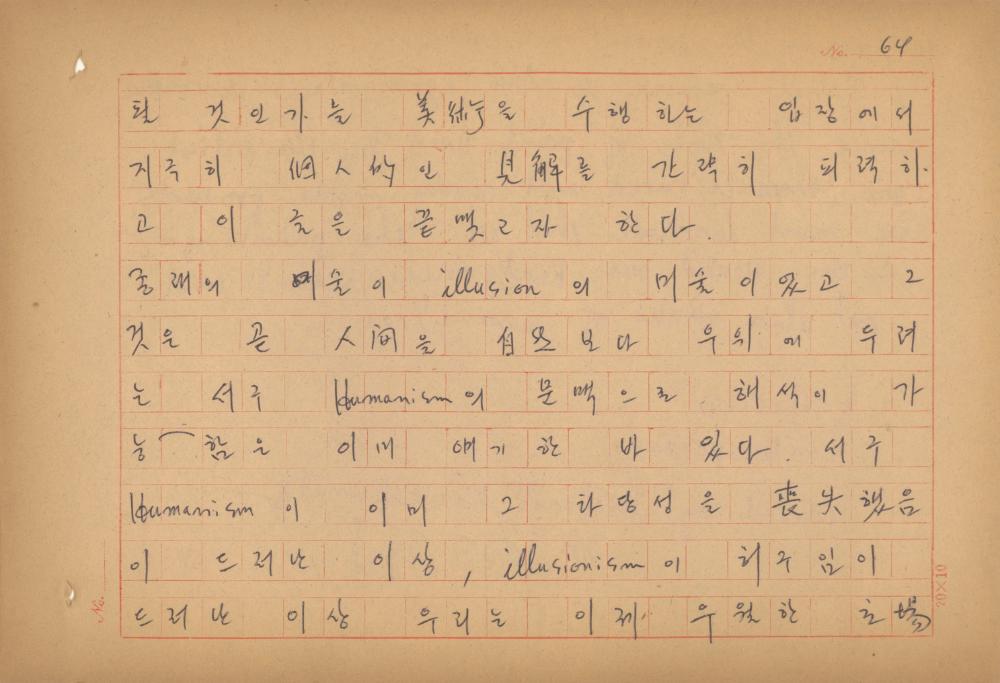 No. 64
될 것인가를 美術을 수행하는 입장에서
지극히 個人的인 見解를 간략히 피력하
고 이 글을 끝맺고자 한다.
종래의 미술이 illusion의 미술이었고 그
것은 곧 人间을 自然보다 우위에 두려
는 서구 Humanism의 문맥으로 해석이 가
능함은 이미 얘기한 바 있다. 서구
Humanism이 이미 그 타당성을 喪失했음
이 드러난 이상, illusionism이 허구임이
드러난 이상 우리는 이제 우월한
No.
20×10